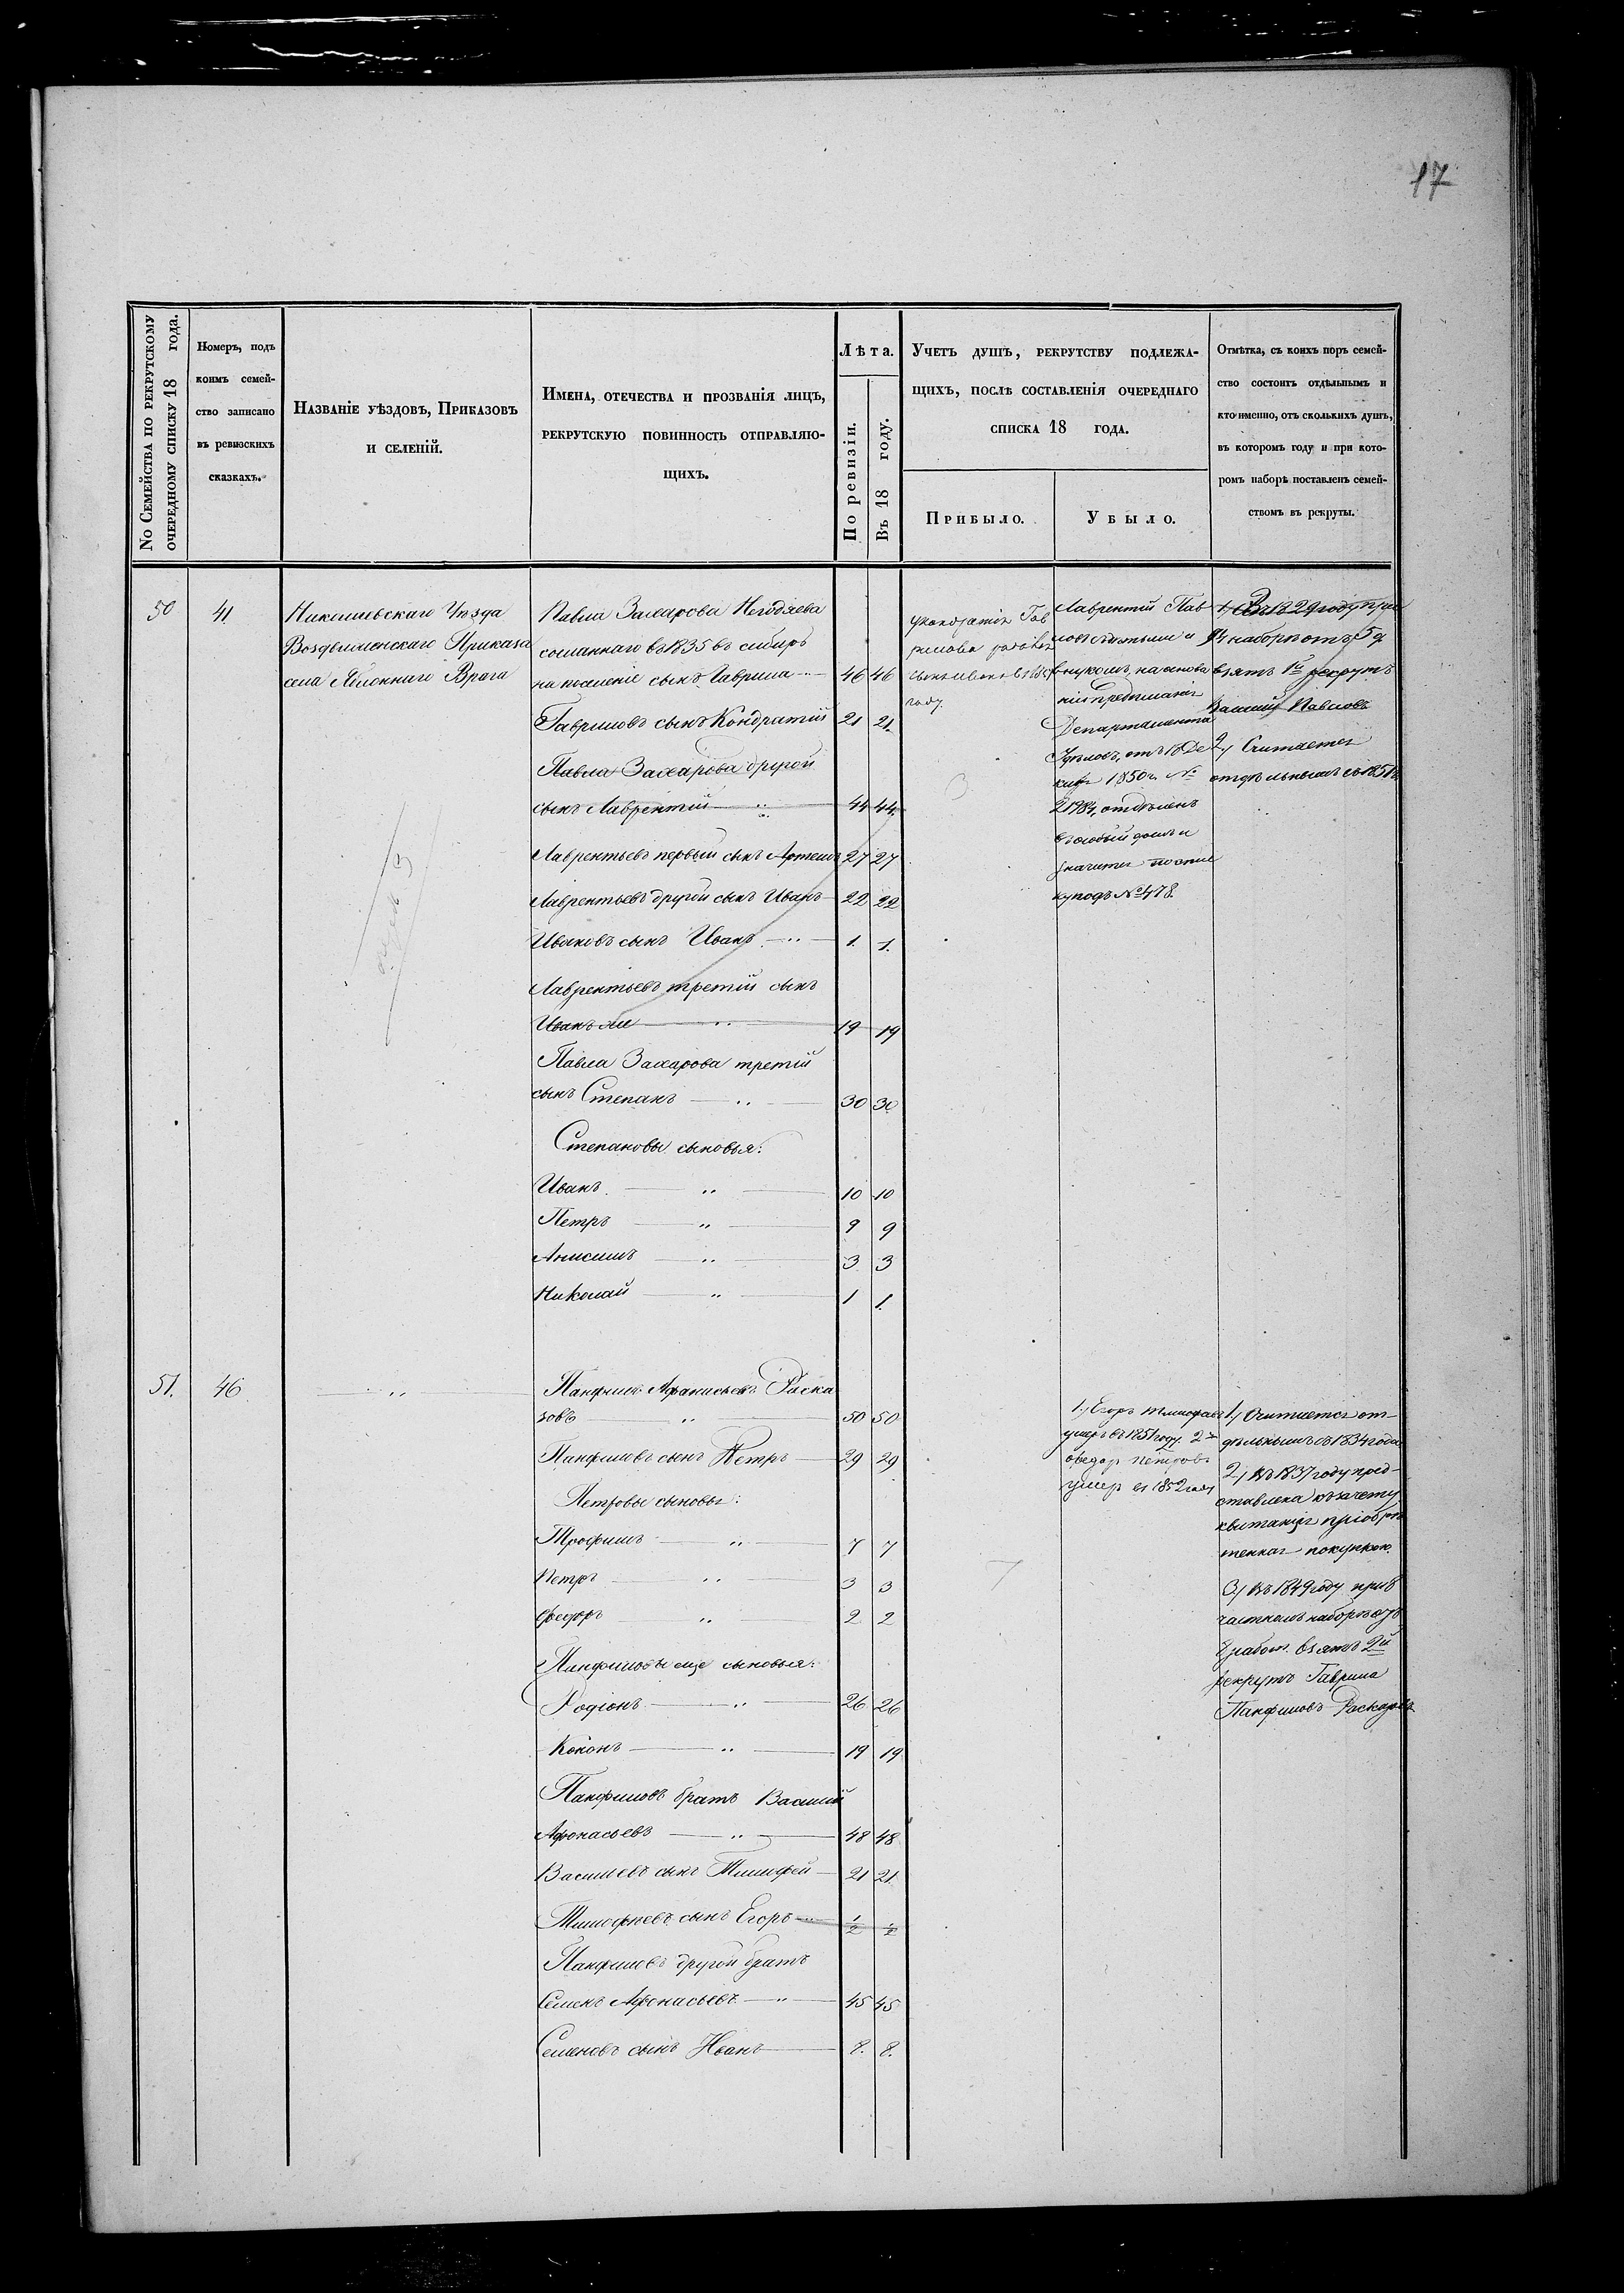 17
No Семейства по рекрутскому
очередному списку 18 года.
Номеръ, подъ
коимъ семей-
ство записано
въ ревизскихъ
сказкахъ.
Названіе уѣздовъ, Приказовъ
и селеній.
Имена, отечества и прозванія лицъ,
рекрутскую повинность отправляю-
щихъ.
Лѣта.
По ревизіи.
Въ 18 году.
Учетъ душъ, рекрутству подлежа-
щихъ, послѣ составленія очереднаго
списка 18 года.
Прибыло.
Убыло.
Отмѣтка, съ коихъ поръ семей-
ство состоитъ отдѣльнымъ и
кто именно, отъ сколькихъ душъ,
въ которомъ году и при кото-
ромъ наборѣ поставленъ семей-
ствомъ въ рекруты.
50
41
Николаевскаго Уѣзда
Воздвиженскаго Приказа
села Яблоннаго Врага
Павла Захарова Негодяева
сосланнаго въ 1835 въ сибирь
на поселеніе сынъ Гаврила 46 46
Гавриловъ сынъ Кондратій 21 21
Павла Захарова другой
сынъ Лаврентій 44 44
Лаврентьевъ первый сынъ Артемъ 27 27
Лаврентьевъ другой сынъ Иванъ 22 22
Ивановъ сынъ Иванъ 1. 1.
Лаврентьевъ третій сынъ
Иванъ же 19 19
Павла Захарова третій
сынъ Степанъ 30 30
Степановы сыновья:
Иванъ 10 10
Петръ 9 9
Анисимъ 3 3
Николай 1 1.
Гав
рилова
году
3
Лаврентій Пав
ловъ съ дѣтьми и
внукомъ, на основа
ніи предписанія
Департамента
Удѣловъ, отъ 18 Де
кабр 1850 г. №
21984, отдѣленъ
въ особый домъ и
значится по спис
ку подъ № 478.
1, Въ 1829 году при
94 наборѣ отъ 5 д
взятъ 1й рекрутъ
Василій Павловъ
2, Считается
отдѣльнымъ съ 1851 г.
51.
46
Панфилъ Афанасьевъ Раска
зовъ 50 50
Панфиловъ сынъ Петръ 29 29
Петровы сыновья:
Трофимъ 7 7
Петръ 3 3
Федоръ 2 2
Панфиловы еще сыновья:
Родіонъ 26 26
Кононъ 19 19
Панфиловъ братъ Василій
Афонасьевъ 48 48
Васильевъ сынъ Тимофей 21 21
Тимофѣевъ сынъ Егоръ ½ ½
Панфиловъ другой братъ
Семенъ Афонасьевъ 45 45
Семеновъ сынъ Иванъ 8. 8.
7
1, Егоръ Тимофѣев
умеръ въ 1851 году. 2
Федоръ Петровъ
умеръ въ 1852 году
1, Считается от-
дѣльнымъ съ 1834 года
2, Въ 1837 году пред-
ставлена къ зачету
квитанція пріобрѣ
тенная покупкою.
3, Въ 1849 году при 8
частномъ наборѣ отъ
работ. взятъ 2й
рекрутъ Гаврила
Панфиловъ Расказовъ